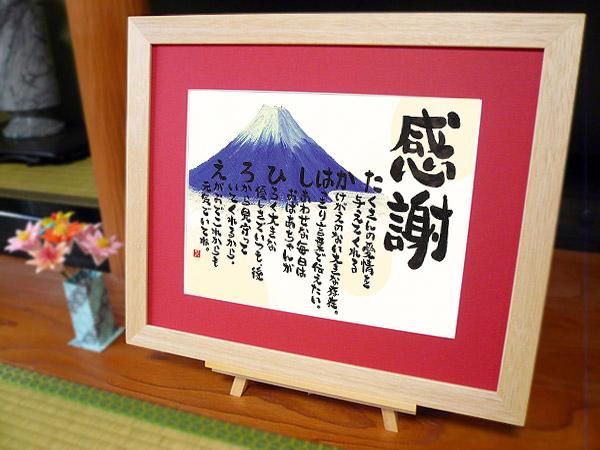 感謝
たくさんの愛情を
与えてくれる
かけがえのない大きな存在。
はっきり言葉で伝えたい。
しあわせな毎日は
おばあちゃんが
ひろく大きな
優しさでいつも後
ろから見守って
いてくれるから。
えがおでこれからも
元気でいてね。